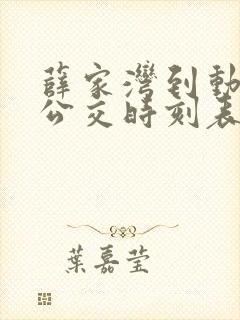 薛家灣到動
公交時刻表
葉嘉莹